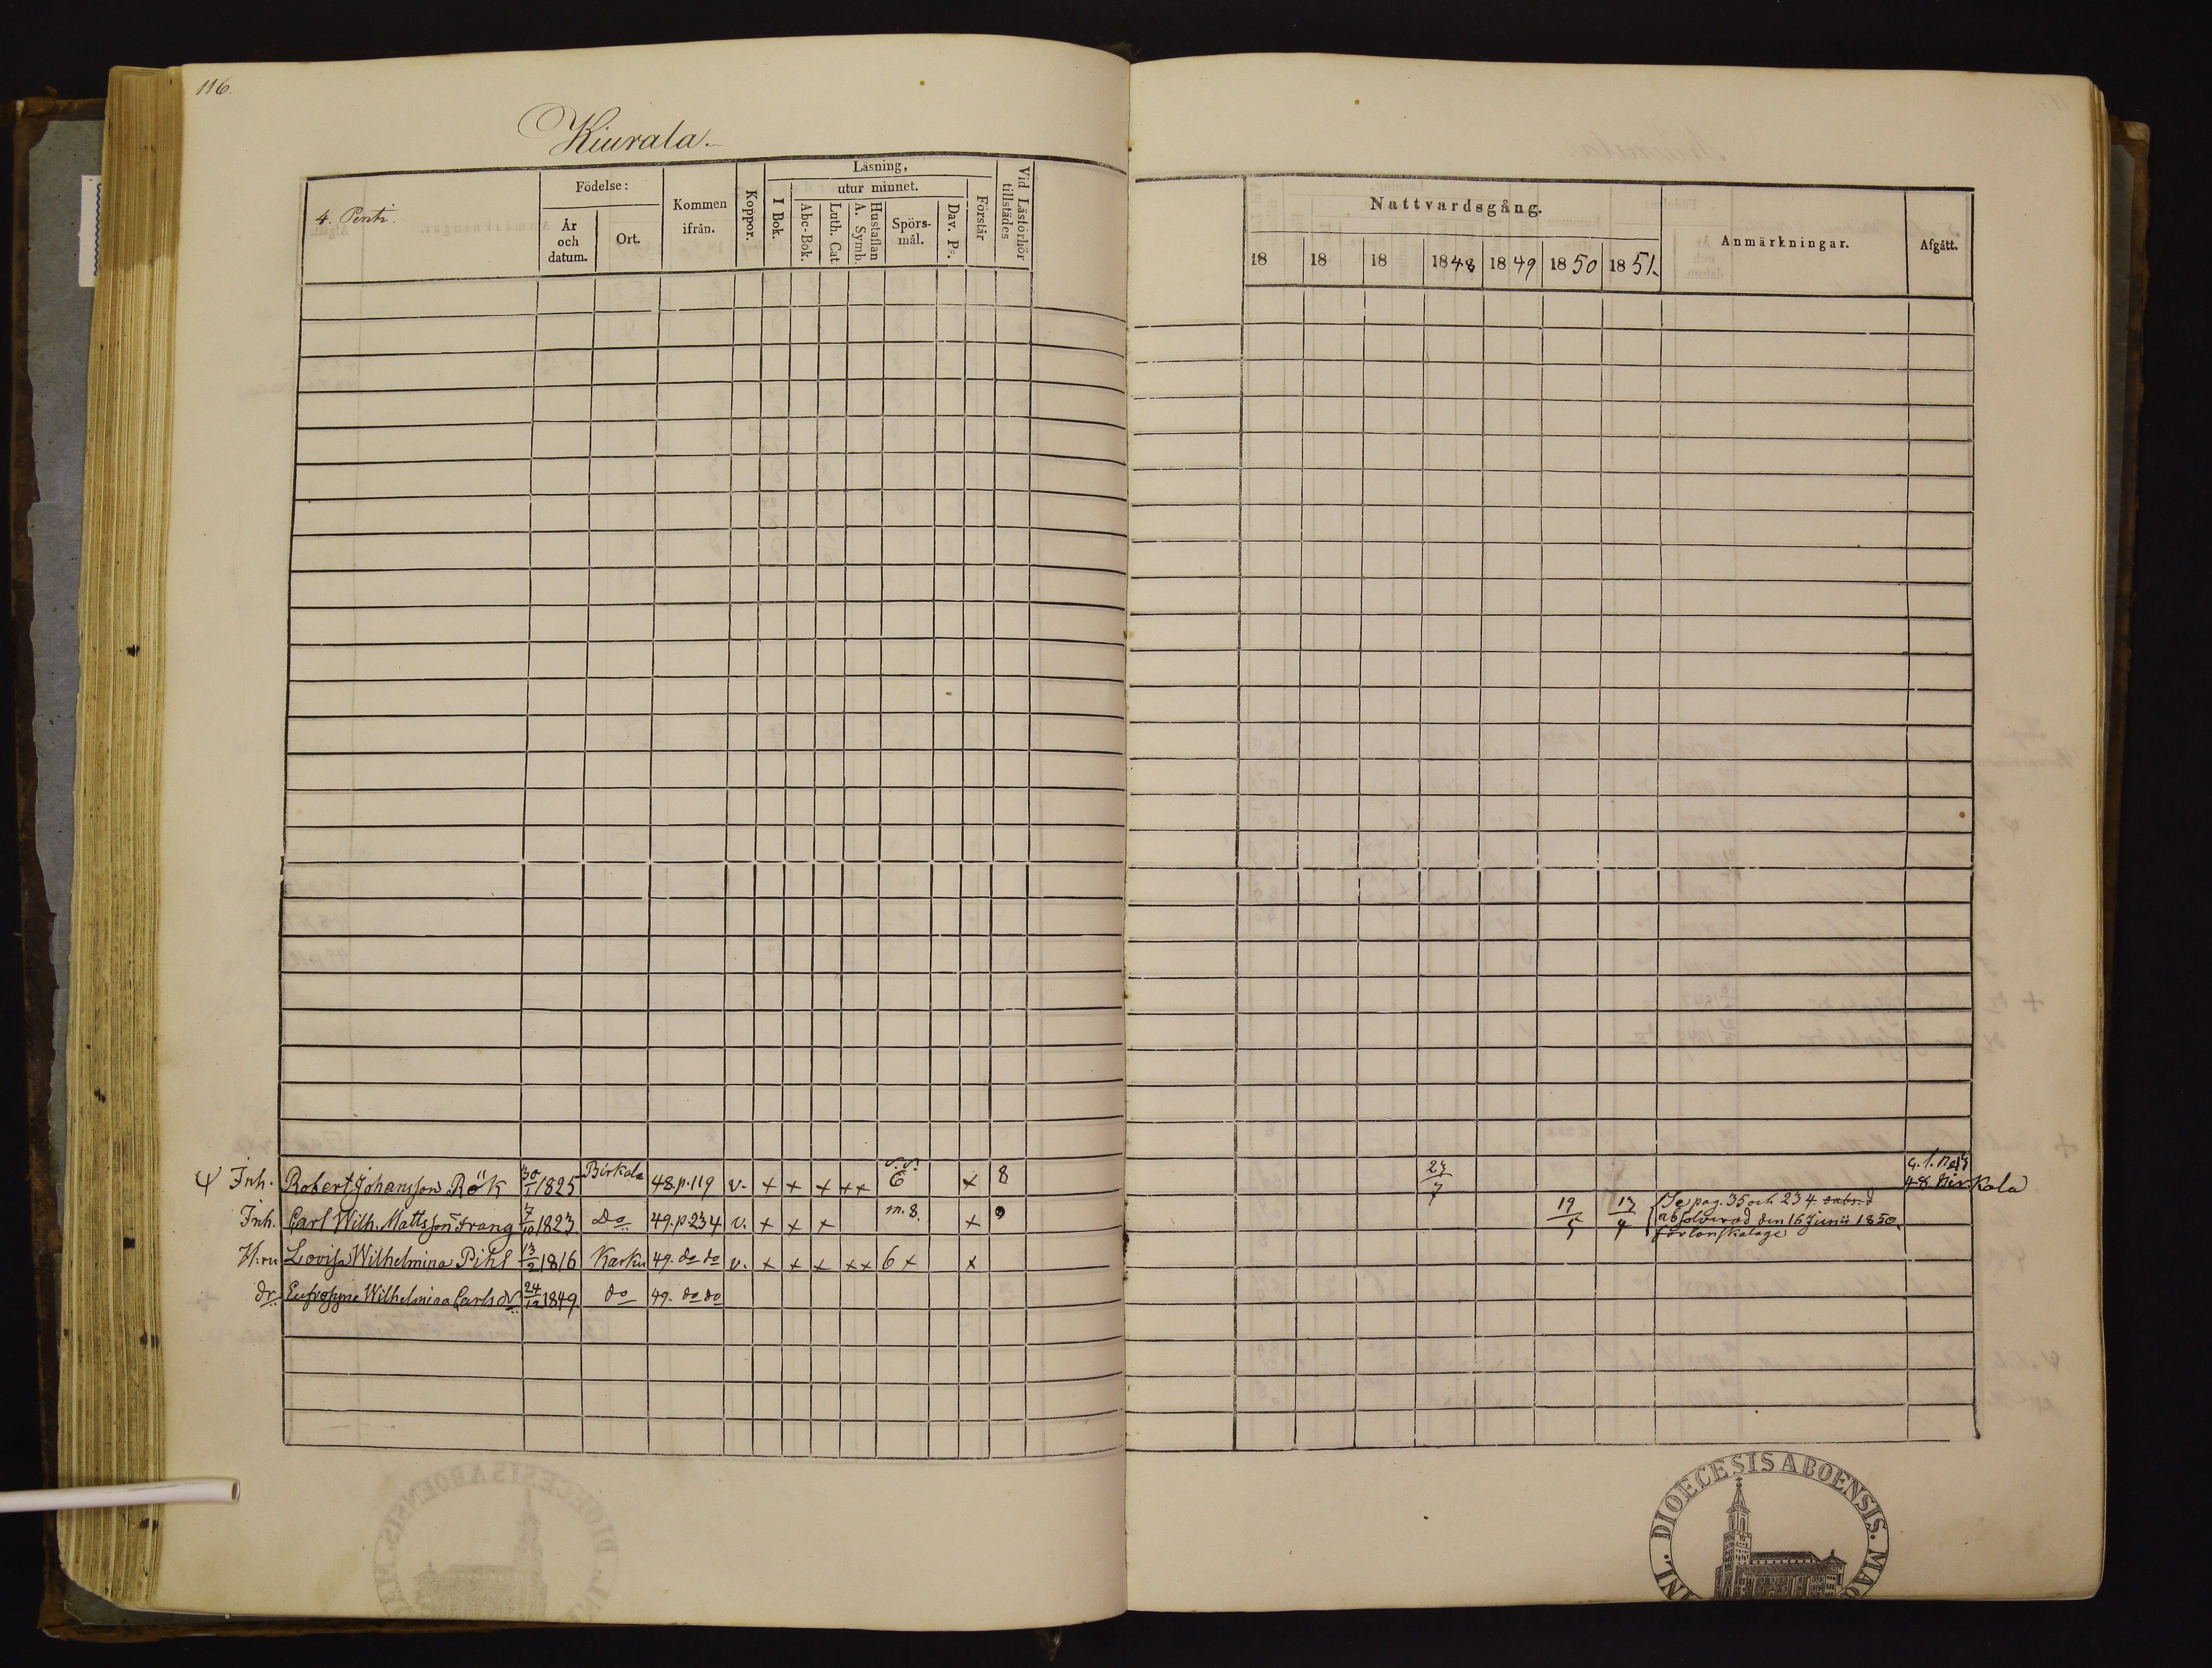 116.
Kiurala.
4. Penti.
Födelse:
År och datum.
Ort.
Kommen ifrån.
Koppor.
Läsning,
I Bok.
utur minnet.
Abc-Bok.
Luth. Cat.
Hustaflan A. Symb.
Spörs-mål.
Dav. Ps.
Förstår
Vid Läsförhör tillstädes
Nattvardsgång.
18 18 18 1848 1849 1850 1851.
Anmärkningar.
Afgått.
Inh. Robert Johansson Röök 30/1 1825 Birkala 48.p.119 v. x x x x x v.v. E x 8 23/7 48 Birkala
Inh. Carl Wilh. Mattsson Frang 7/10 1823 Do 49.p 234 v. x x x m.8. x 9 19/5 13/4 Se pag. 35 och 234
absolverad den 16 Junii 1850.
H:ru Lovisa Wilhelmina Pihl 13/2 1816 Karku 49. do do v. x x x x x 6 x x
dr. Eufrosyne Wilhelmina Carlsdr 24/12 1849. do 49. do do
DIOECESIS ABOENSIS. MAG
INL.